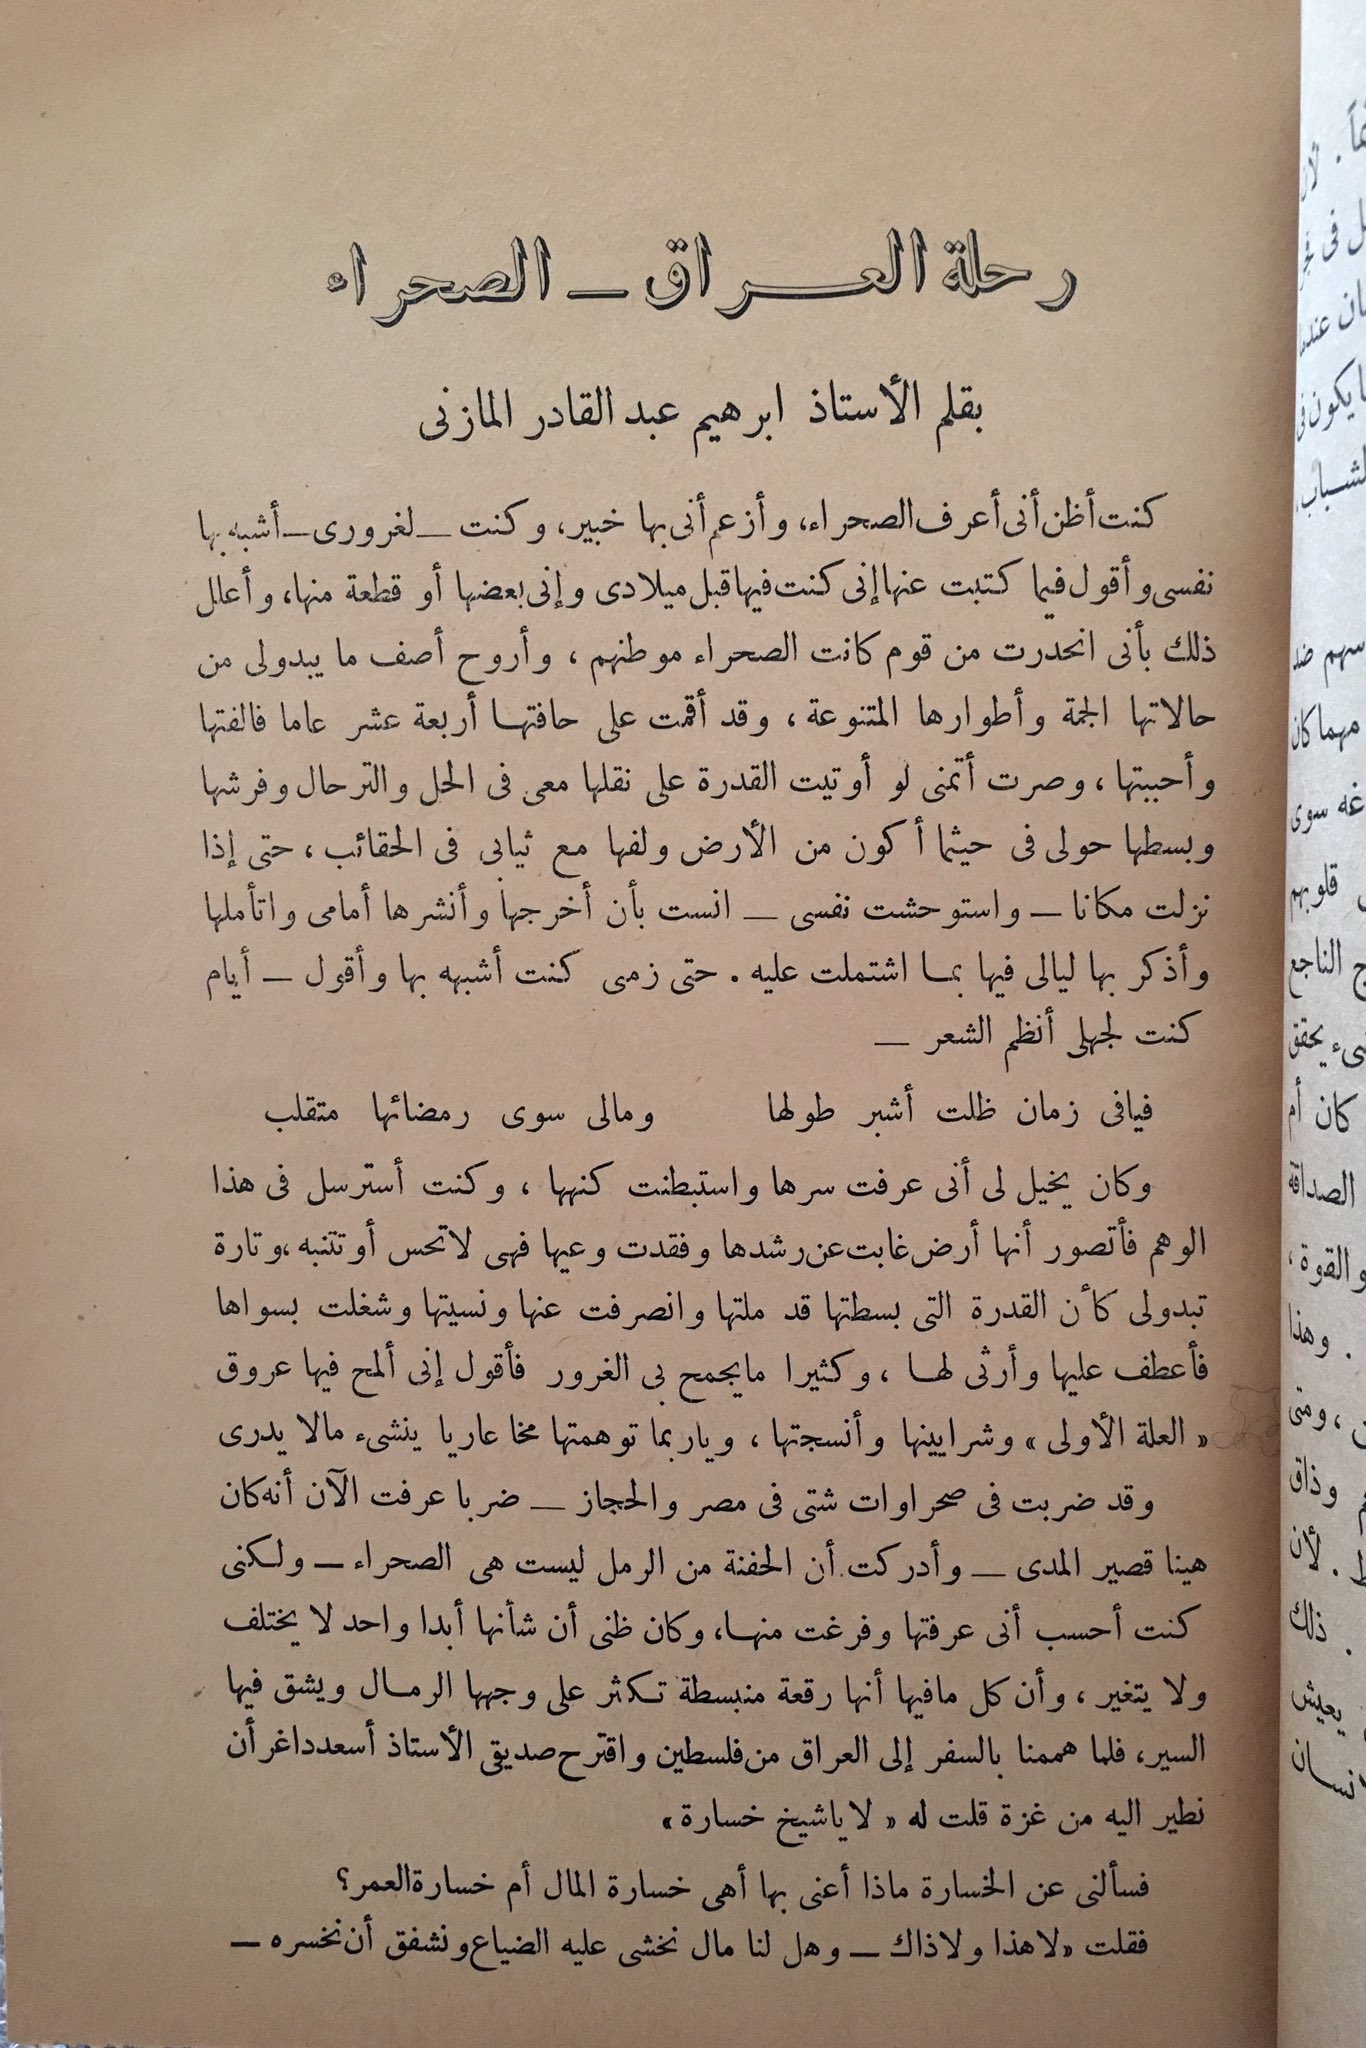 رحلة العراق — الصحراء
بقلم الأستاذ ابرهيم عبد القادر المازنى
كنت أظن أنى أعرف الصحراء، وأزعم أنى بها خبير، وكنت — لغرورى — أشبه بها
نفسى وأقول فيما كتبت عنها إنى كنت فيها قبل ميلادى وإنى بعضها أو قطعة منها، وأعلل
ذلك بأنى انحدرت من قوم كانت الصحراء موطنهم، وأروح أصف ما يبدولى من
حالاتها الجمة وأطوارها المتنوعة، وقد أقمت على حافتها أربعة عشر عاما فالفتها
وأحببتها، وصرت أتمنى لو أوتيت القدرة على نقلها معى فى الحل والترحال وفرشها
وبسطها حولى فى حيثما أكون من الأرض ولفها مع ثيابى فى الحقائب، حتى إذا
نزلت مكانا — واستوحشت نفسى — انست بأن أخرجها وأنشرها أمامى واتأملها
وأذكر بها ليالى فيها بما اشتملت عليه. حتى زمى كنت أشبهه بها وأقول — أيام
كنت لجهلى أنظم الشعر —
فيافى زمان ظلت أشبر طولها ومالى سوى رمضائها متقلب
وكان يخيل لى أنى عرفت سرها واستبطنت كنهها، وكنت أسترسل فى هذا
الوهم فأتصور أنها أرض غابت عن رشدها وفقدت وعيها فهى لاتحس أوتتنبه، وتارة
تبدولى كأن القدرة التى بسطتها قد ملتها وانصرفت عنها ونسيتها وشغلت بسواها
فأعطف عليها وأرثى لها، وكثيرا مايجمح بى الغرور فأقول إنى ألمح فيها عروق
« العلة الأولى » وشرايينها وأنسجتها، وياربما توهمتها مخا عاريا ينشىء مالا يدرى
وقد ضربت فى صحراوات شتى فى مصر والحجاز — ضربا عرفت الآن أنه كان
هينا قصير المدى — وأدركت أن الحفنة من الرمل ليست هى الصحراء — ولكنى
كنت أحسب أنى عرفتها وفرغت منها، وكان ظنى أن شأنها أبدا واحد لا يختلف
ولا يتغير، وأن كل مافيها أنها رقعة منبسطة تكثر على وجهها الرمال ويشق فيها
السير، فلما هممنا بالسفر إلى العراق من فلسطين واقترح صديقى الأستاذ أسعد داغر أن
نطير اليه من غزة قلت له « لا ياشيخ خسارة »
فسألنى عن الخسارة ماذا أعنى بها أهى خسارة المال أم خسارة العمر؟
فقلت « لاهذا ولاذاك — وهل لنا مال نخشى عليه الضياع ونشفق أن نخسره —
لأن
ان عند
يكون فى
الشباب
سهم ضد
مهما كان
سوى
قلوبهم
الناجع
يحقق
كان أم
الصداقة
والقوة،
. وهذا
، ومتى
وذاق
. لأن
. ذلك
يعيش